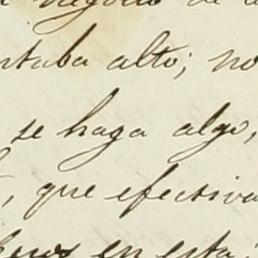 negocio de
ntaba alto; no
se haga algo,
, que efectiva
en esta